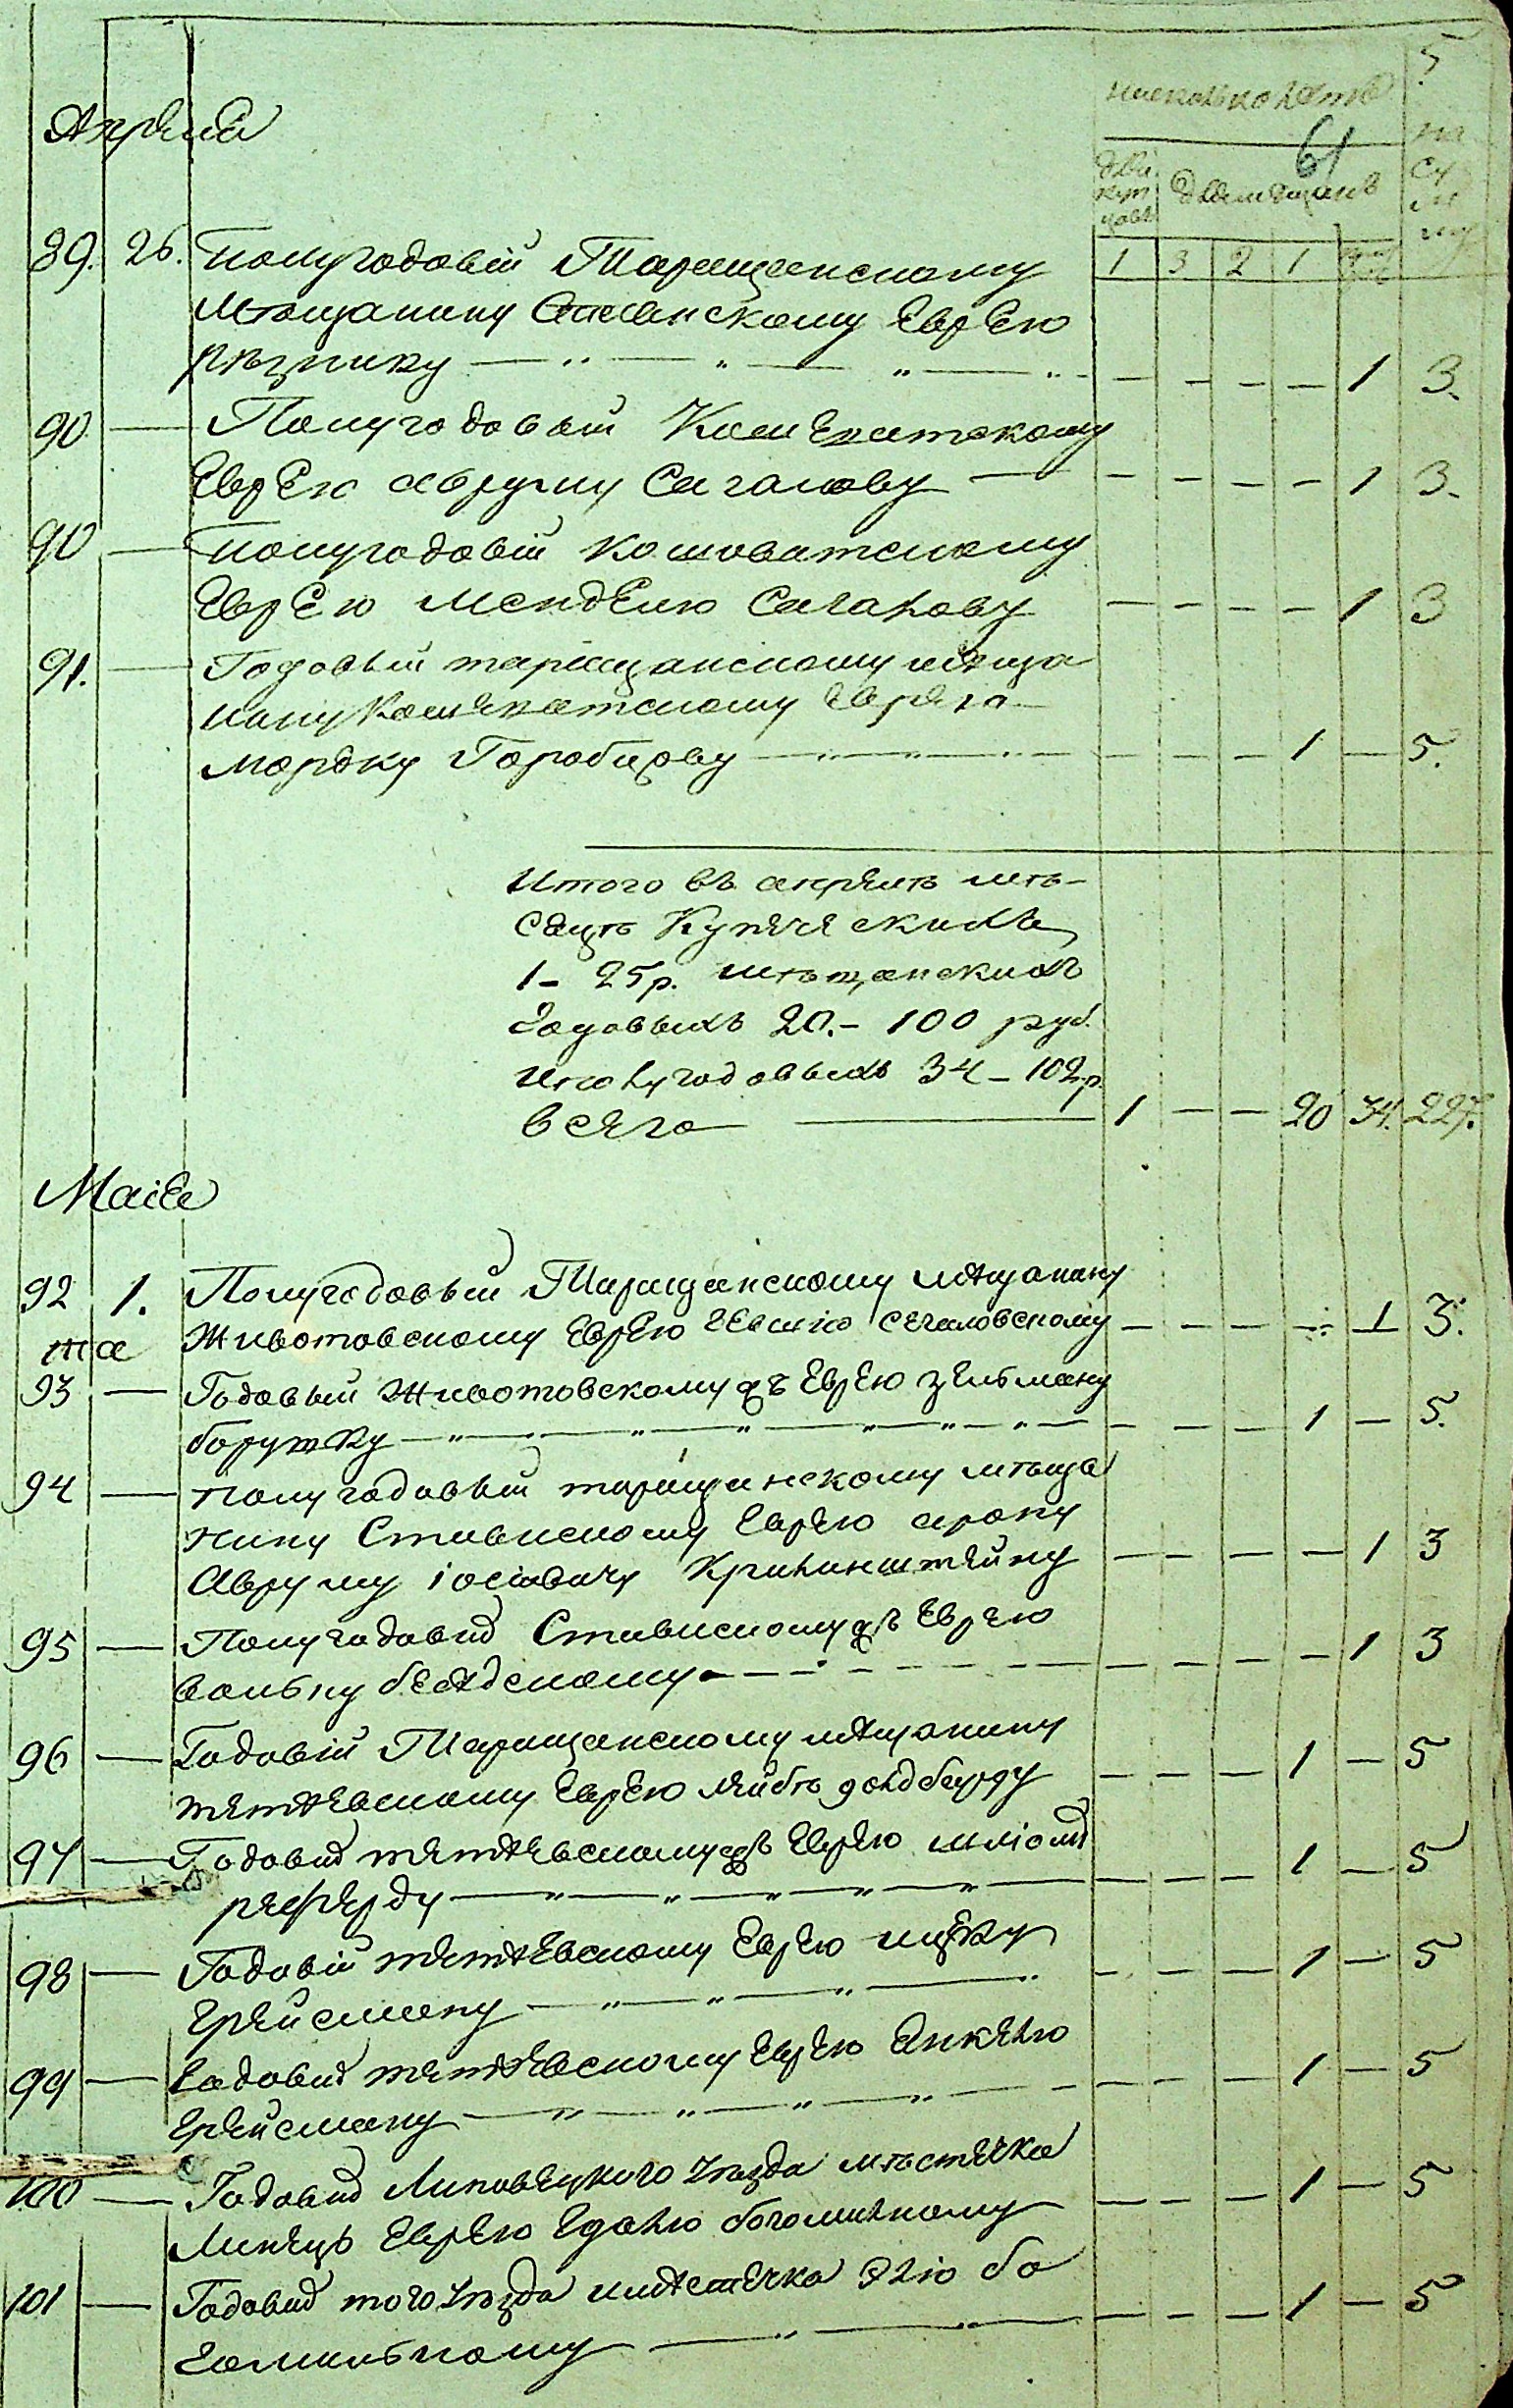 5
насколько летъ
на сумму
61
Апреля
для купцовъ
для мещанъ
1 3 2 1 полугод
89. 26. Полугодовій Таращанскому
Мѣщанину Еврею
рѣзнику — — — — 1 3.
90 — Полугодовый Кошеватскому
Еврею Авруму Сигалову — — — — — 1 3.
90 — Полугодовій Кошоватскому
Еврею Менделю Сигалову — — — — 1 3
91. — Годовый таращанскому мѣща
нину Кошеватскому Еврею
Мордку Горобцову — — — — 1 — 5.
Итого въ апрелѣ мѣ-
сяцѣ Купеческихъ
1 - 25 р. мѣщанскихъ
Годовыхъ 20. - 100 руб.
и полугодовыхъ 34 - 102 р.
всего — 1 — — 20 34. 227.
Маія
92 1. Полугодовый Таращанскому мѣщанину
Животовскому Еврею Сегаловскому — — — — 1 3.
93 — Годовый Животовскому Еврею Зельману
боружку — — — — 1 — 5.
94 — Полугодовый таращанскому мѣща
нину Ставискому Еврею арону
Авруму іосіовичу Кригинштейну — — — — 1 3
95 — Полугодовий Ставискому Еврею
вольку беседскому — — — — 1 3
96 — Годовій Таращанскому мѣщанину
тетіевскому Еврею Лейбѣ голдбурду — — — 1 — 5
97 — Годовий тетіевскому Еврею шліомѣ
реферду — — — 1 — 5
98 — Годовій тетіевскому Еврею ицку
Грейсману — — — 1 — 5
99 — Годовий тетіевскому Еврею Янкелю
Грейсману — — — 1 — 5
100 — Годовий Липовецкого уѣзда мѣстечка
Линецъ Еврею богомильному — — — 1 — 5
101 — Годовий того уѣзда местечка Элію бо
гомильному — — — 1 — 5